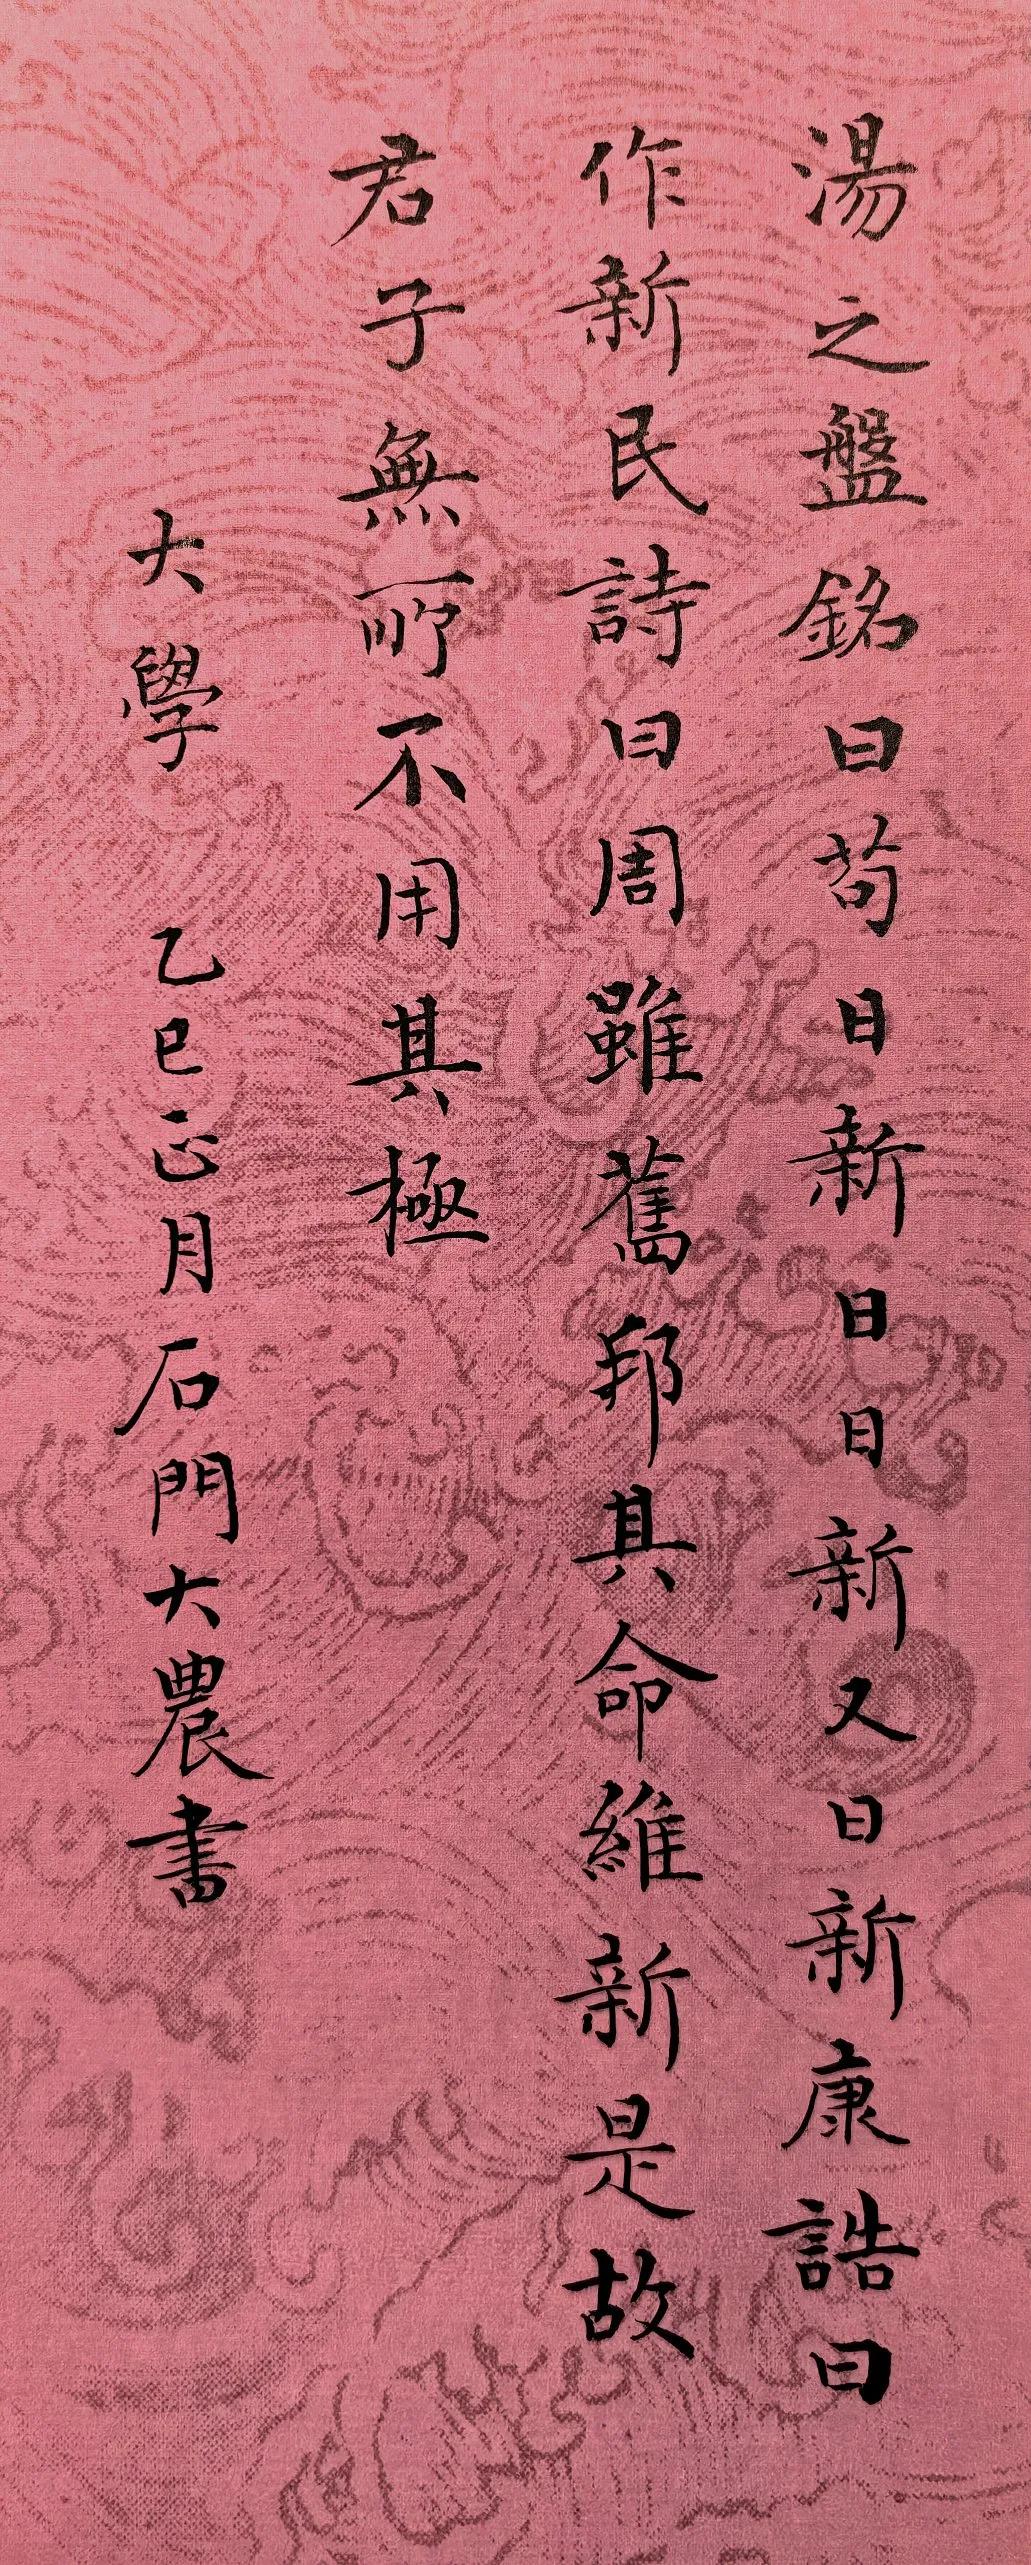 湯之盤銘曰苟日新日日新又日新康誥曰
作新民詩曰周雖舊邦其命維新是故
君子無所不用其極
大學 乙巳正月石門大農書